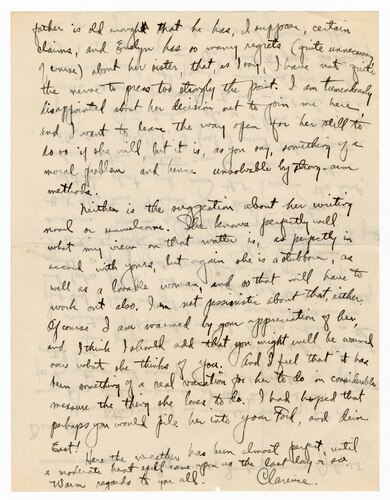 father is old enough that he has, I suppose, certain
claims, and Evelyn has so many regrets (quite unnecessary
of course) about her sister, that as I say, I have not quite
the nerve to press too strongly the point. I am tremendously
disappointed about her decision not to join me here,
and I want to leave the way open for her still to
do so if she will, but it is, as you say, something of a
moral problem and hence unsolvable by strong-arm
methods.
Neither is the suggestion about her writing
novel or unwelcome. She knows perfectly well
what my view on that matter is, as perfectly in
accord with yours, but again she is a stubborn, as
well as a lovable woman, and so that will have to
work out also. I am not pessimistic about that either.
Of course I am warmed by your appreciation of her,
and I think I should add that you might well be warmed
over what she thinks of you. And I feel that it has
been something of a real vacation for her to do in considerable
measure the thing she loves to do. I had hoped that
perhaps you would pile her into your Ford, and
East!
Here the weather has been almost perfect, until
a moderate heat spell came upon us the last day or so.
Warm regards to you all.
Clarence.